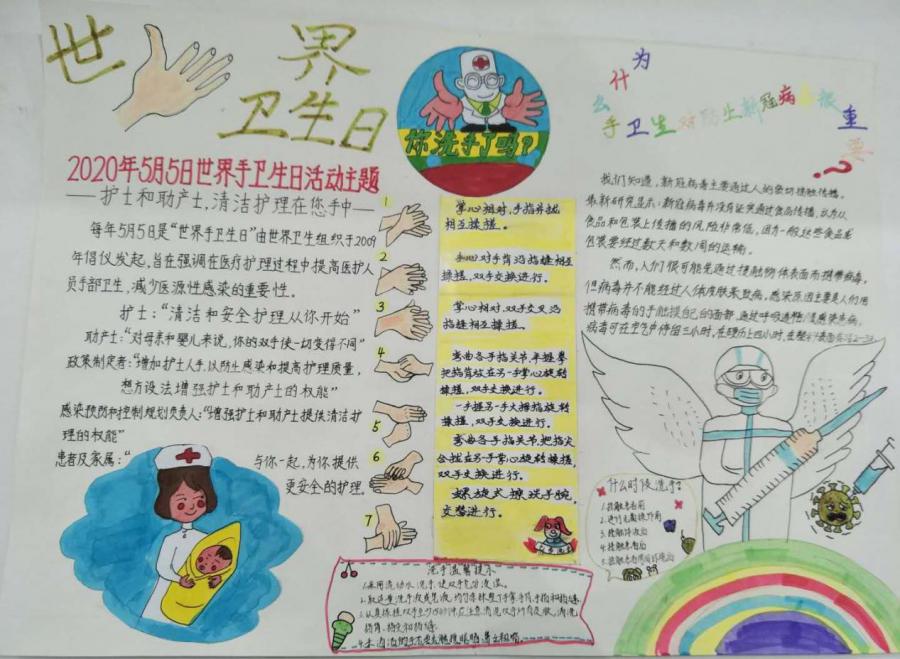 世 界
卫生日
2020年5月5日世界手卫生日活动主题
——护士和助产士,清洁护理在您手中——
每年5月5日是“世界手卫生日”由世界卫生组织于2009
年倡仪发起,旨在强调在医疗护理过程中提高医护人
员手部卫生,减少医源性感染的重要性。
护士:“清洁和安全护理从你开始”
助产士:“对母亲和婴儿来说,你的双手使一切变得不同”
政策制定者:“增加护士人手,以防止感染和提高护理质量,
想方设法增强护士和助产士的权能”
感染预防和控制规划负责人:“增强护士和助产士提供清洁护
理的权能”
患者及家属:“
与你一起,为你提供
更安全的护理。
你洗手了吗?
1
2
3
4
5
6
7
掌心相对,手指并拢
相互揉搓。
手心对手背沿指缝相互
揉搓,双手交换进行。
掌心相对,双手交叉沿
指缝相互揉搓。
弯曲各手指关节,半握拳
把指背放在另一手掌心旋转
揉搓,双手交换进行。
一手握另一手大拇指旋转
揉搓,双手交换进行。
弯曲各手指关节,把指尖
合拢在另一手掌心旋转揉搓,
双手交换进行。
螺旋式擦洗手腕,
交替进行。
洗手温馨提示
1.采用流动水洗手,使双手充分浸湿。
为什么手卫生对防止新冠病 很重要?
我们知道,新冠病毒主要通过人的密切接触传播。
最新研究显示:新冠病毒并没有证实通过食品传播,
食品和包装上传播的风险非常低,因为一般这些食品或
包装要经过数天和数周的运输。
然而,人们很可能是通过接触物体表面而携带病毒。
但病毒并不能经过人体皮肤来致病,感染原因主要是人们用
携带病毒的手触摸自己的面部,
病毒可在空气中停留三小时,
什么时候洗手?
1.接触患者前
2.进行无菌操作前
3.接触体液后
4.接触患者后